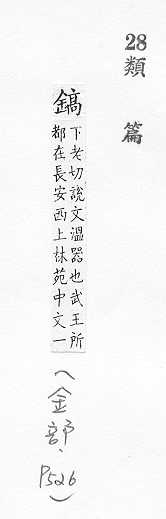 28類篇
鎬下老切說文溫器也武王所
都在長安西上林苑中文一
(金部、P526)